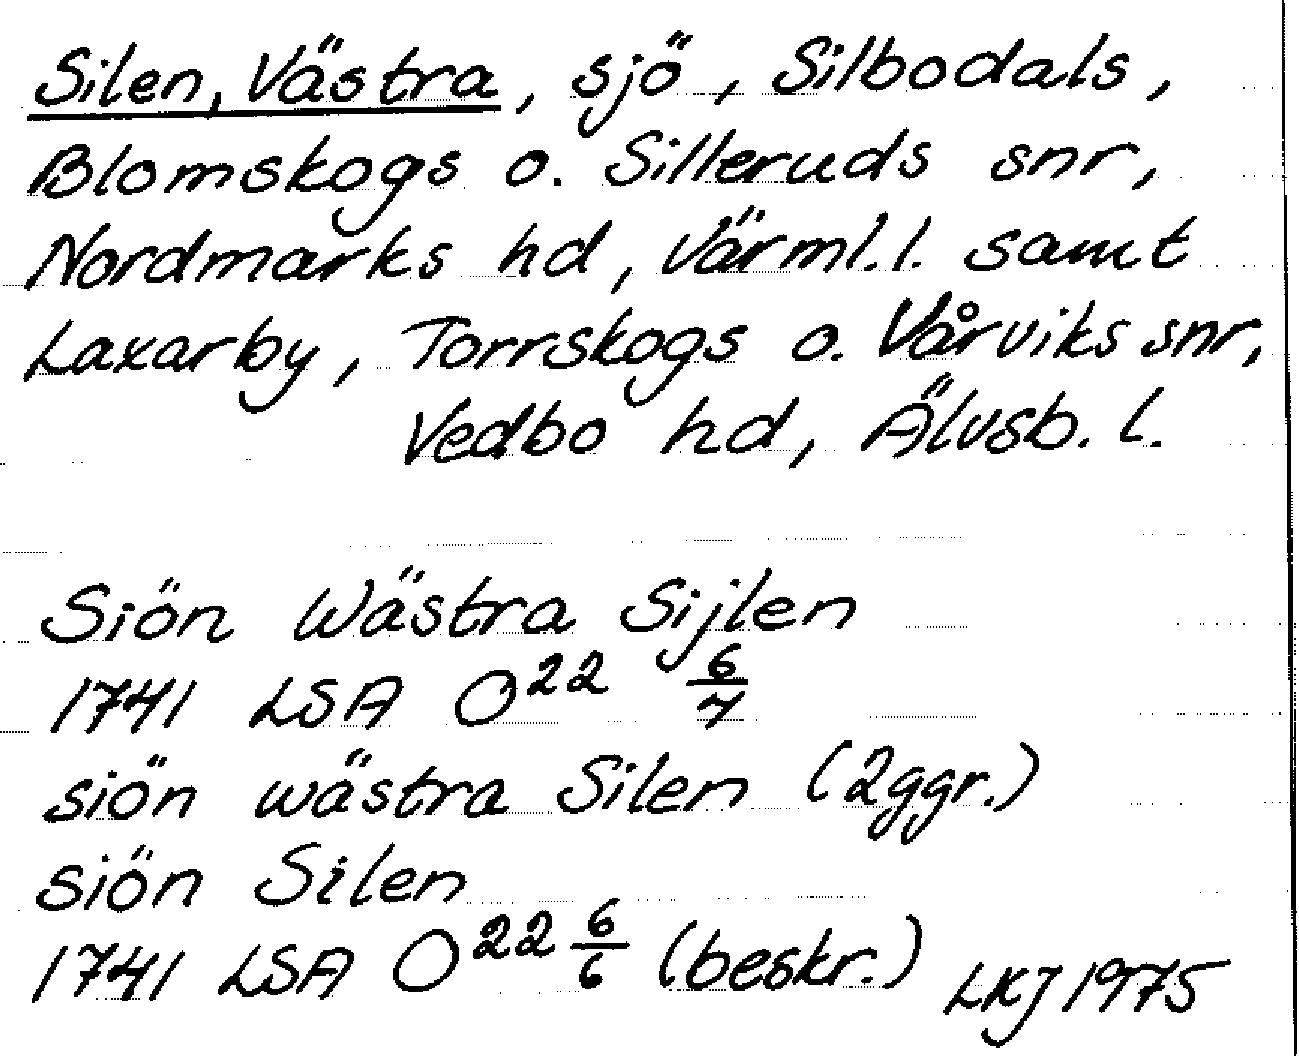 Silen, Västra, sjö, Silbodals,
Blomskogs o. Silleruds snr,
Nordmarks hd, Värml.l. samt
Laxarby, Torrskogs o. Vårviks snr,
Vedbo hd, Älvsb. l.
Siön Wästra Sijlen
1741 LSA O²² 6/7
siön wästra Silen (2ggr.)
siön Silen
1741 LSA O²² 6/6 (beskr.) LKJ 1975